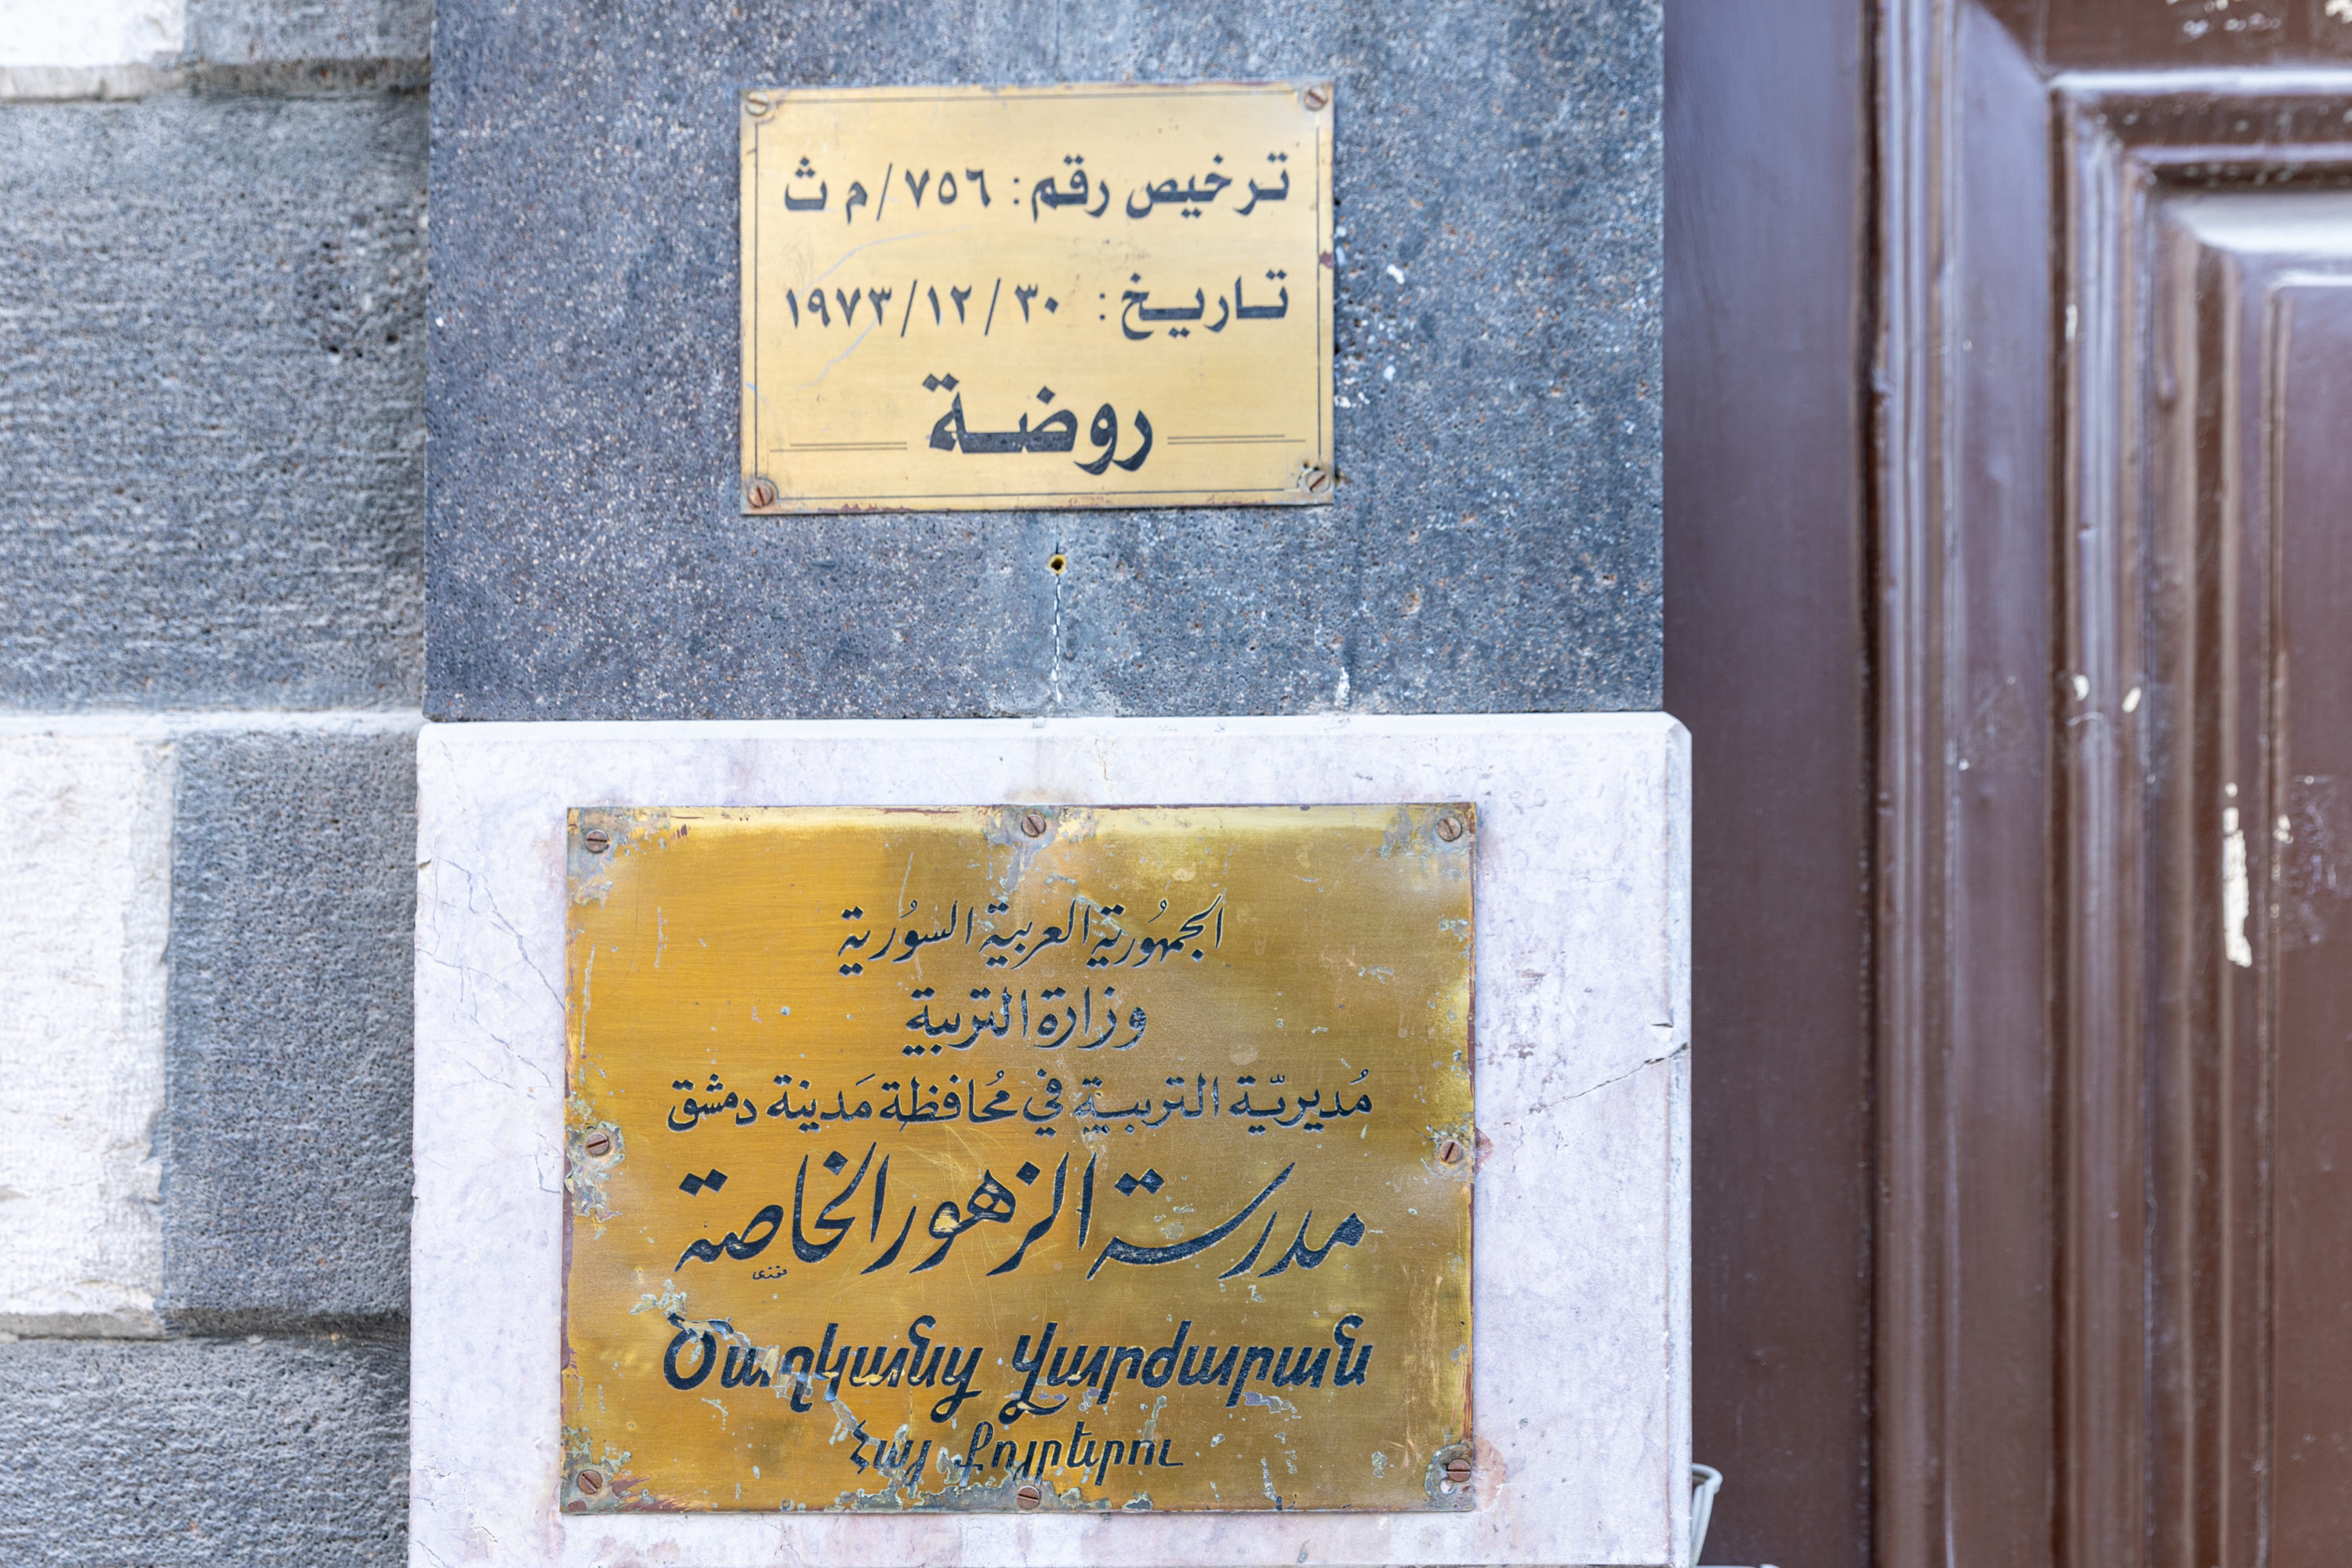 ترخيص رقم: ٧٥٦/م ث
تاريخ: ٣٠/١٢/١٩٧٣
روضة
الجمهُورية العربية السورُية
وزارة التربية
مُديريّة التربية في مُحافظة مَدينة دمشق
مدرسة الزهور الخاصة
Ծաղկանց Վարժարան
Հայ Քոյրերու